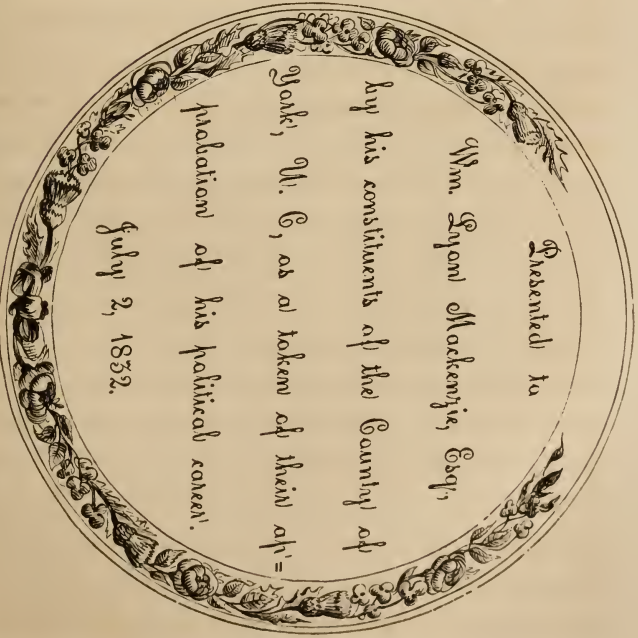 Presented to
Wm. Lyon Mackenzie, Esq.,
by his constituents of the County of
York, U. C, as a token of their ap=
probation of his political career.
July 2, 1832.